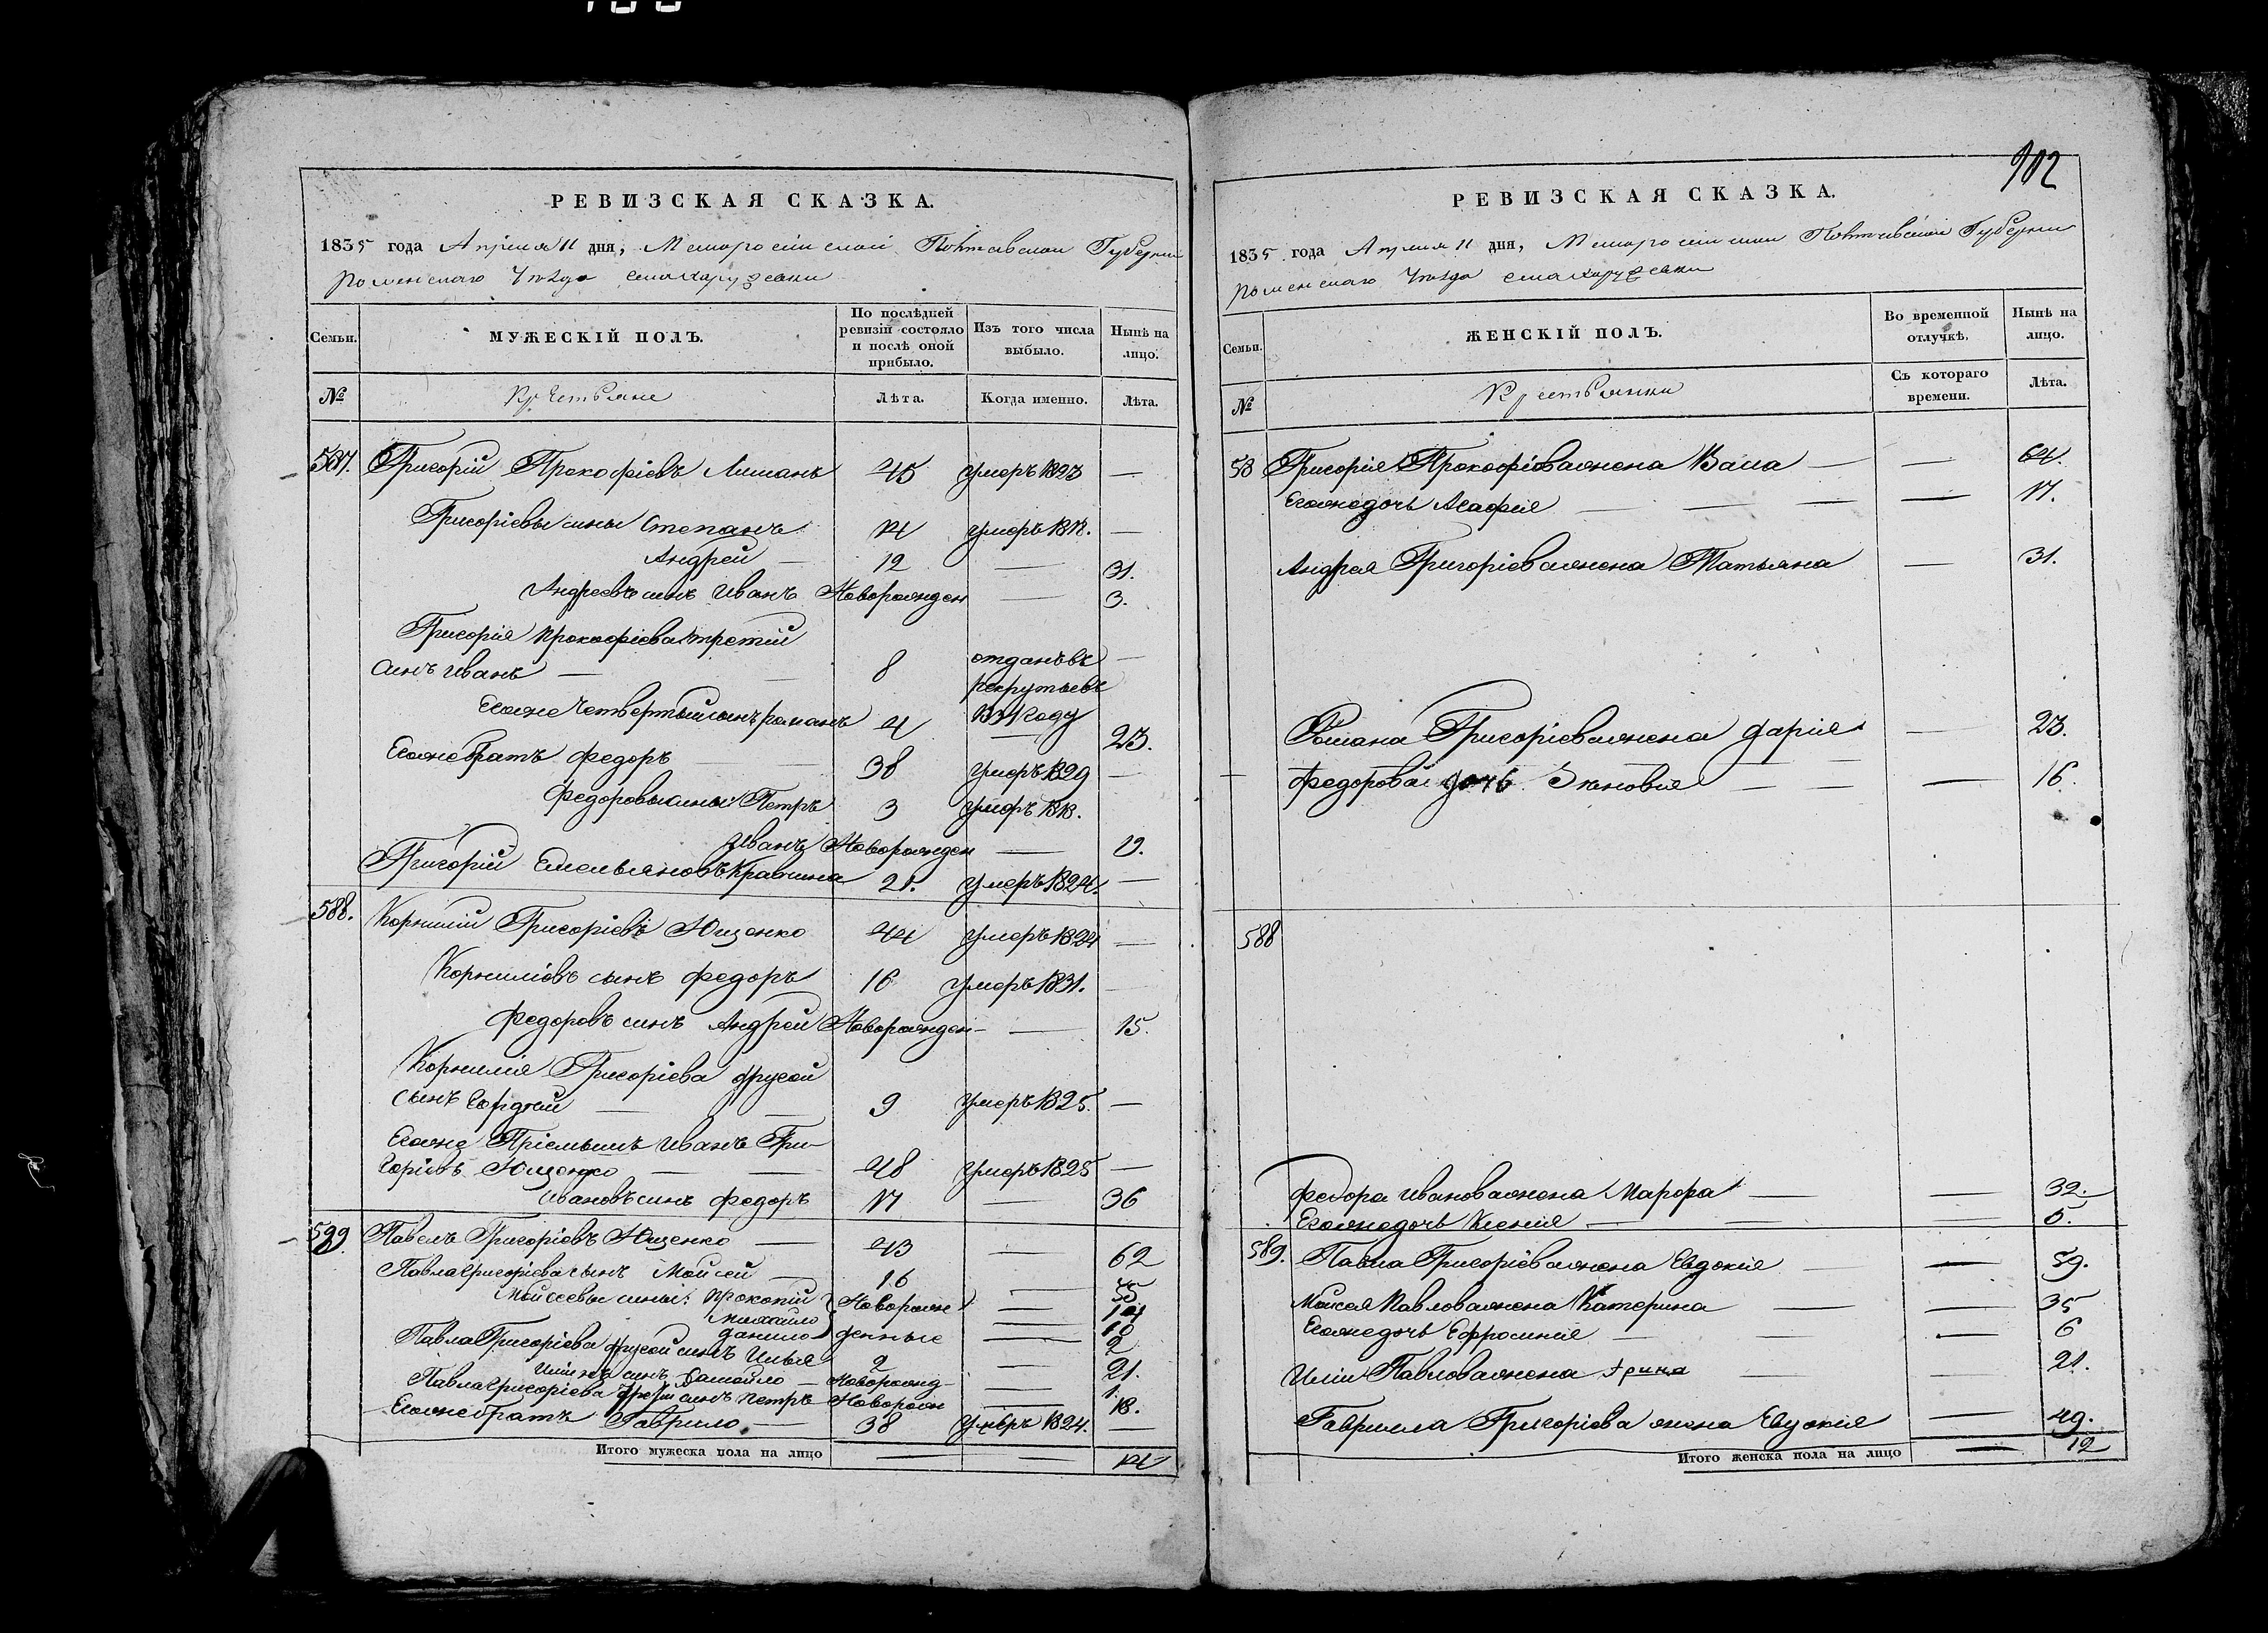 902
РЕВИЗСКАЯ СКАЗКА.
1835 года Апреля 11 дня, Малоросійской Полтавской Губернии
Роменскаго Уезда села
Семьи.
МУЖЕСКІЙ ПОЛЪ.
По послѣдней ревизіи состояло и послѣ оной прибыло.
Изъ того числа выбыло.
Нынѣ на лицо.
№
Крестьяне
Лѣта.
Когда именно.
Лѣта.
587. Григорій Прокофіевъ 45 умеръ 1823 —
Григоріевы сины Степанъ 14 умеръ 1818. —
Андрей — 12 — 31.
Андреевъ синъ Иванъ Новорожден — 3.
Григорія Прокофіева третій
синъ Иванъ — 8 отданъ въ рекруты въ году —
Егоже четвертый синъ Романъ 4 — 23.
Егоже братъ Федоръ 38 умеръ 1829 —
Федоровы сины: Петръ 3 умеръ 1818.
Иванъ Новорожден — 19.
Григорій Емельяновъ 21. умеръ 1824. —
588. Корнилій Григоріевъ Ющенко 44 умеръ 1824 —
Корниліевъ сынъ Федоръ 16 умеръ 1831. —
Федоровъ синъ Андрей Новорожден — 15.
Корнилія Григоріева другой
сынъ — 9 умеръ 1825. —
Егоже Пріемышъ Иванъ Гри-
горіевъ Ющенко — 48 умеръ 1825 —
Ивановъ синъ Федоръ 17 — 36
589. Павелъ Григоріевъ Ющенко — 43 — 62
Павла Григоріева сынъ Мойсей — 16 — 35
Мойсеевы сины: Прокопій Новорож —
Михайло —
Данило денные — 2
Павла Григоріева другой синъ Илья 2 — 21.
Иліинъ синъ Самойло — Новорожд — 1.
Павла Григоріева третій синъ Петръ Новорож — 18.
Егоже братъ Гаврило — 38 умеръ 1824. —
Итого мужеска пола на лицо — — 14
РЕВИЗСКАЯ СКАЗКА.
1835 года Апреля 11 дня, Малоросійской Полтавской Губернии
Роменскаго Уезда села
Семьи.
ЖЕНСКІЙ ПОЛЪ.
Во временной отлучкѣ.
Нынѣ на лицо.
№
Крестьянки
Съ котораго времени.
Лѣта.
58 Григорія Прокофіева жена — — 64.
Егоже дочь Агафія — — 17.
Андрея Григоріева жена Татьяна — 31.
Романа Григоріева жена Дарія — 23.
Федорова дочь Зиновия — — 16.
588
Федора Иванова жена Марфа — — 32.
Егоже дочь Ксенія — — 5.
589. Павла Григоріева жена Евдокія — — 59.
Мойсея Павлова жена Катерина — — 35
Егоже дочь Ефросинія — — 6
Иліи Павлова жена Ирина — 21.
Гавриила Григоріева жена Евдокія — 49.
Итого женска пола на лицо — 12